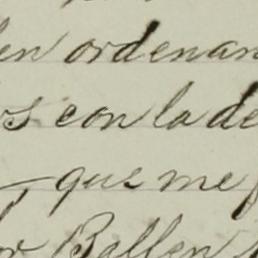 en ordenan
s con la de
que me
Ballen